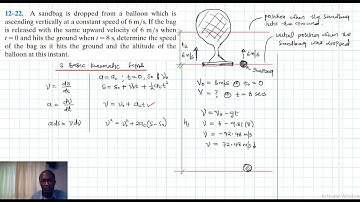 12–22. A sandbag is dropped from a balloon which is
ascending vertically at a constant speed of 6 m/s. If the bag
is released with the same upward velocity of 6 m/s when
t = 0 and hits the ground when t = 8 s, determine the speed
of the bag as it hits the ground and the altitude of the
balloon at this instant.
3 Basic Kinematic Eqns
v = ds/dt
a = dv/dt
ads = vdv
a = ac ; t=0, so & vo
s = so + vot + ½act²
v = vo + act
v² = vo² + 2ac(s - so)
position when the sandbag
hits the ground
initial position when the
sandbag was dropped
h2
6m/s
6m/s
Sandbag
h1
vo = 6m/s @ to = 0
v = ? @ t = 8 secs
v = vo - gt
v = 6 - 9.81(8)
v = -72.48 m/s
v = 72.48 m/s ↓
Activate Window